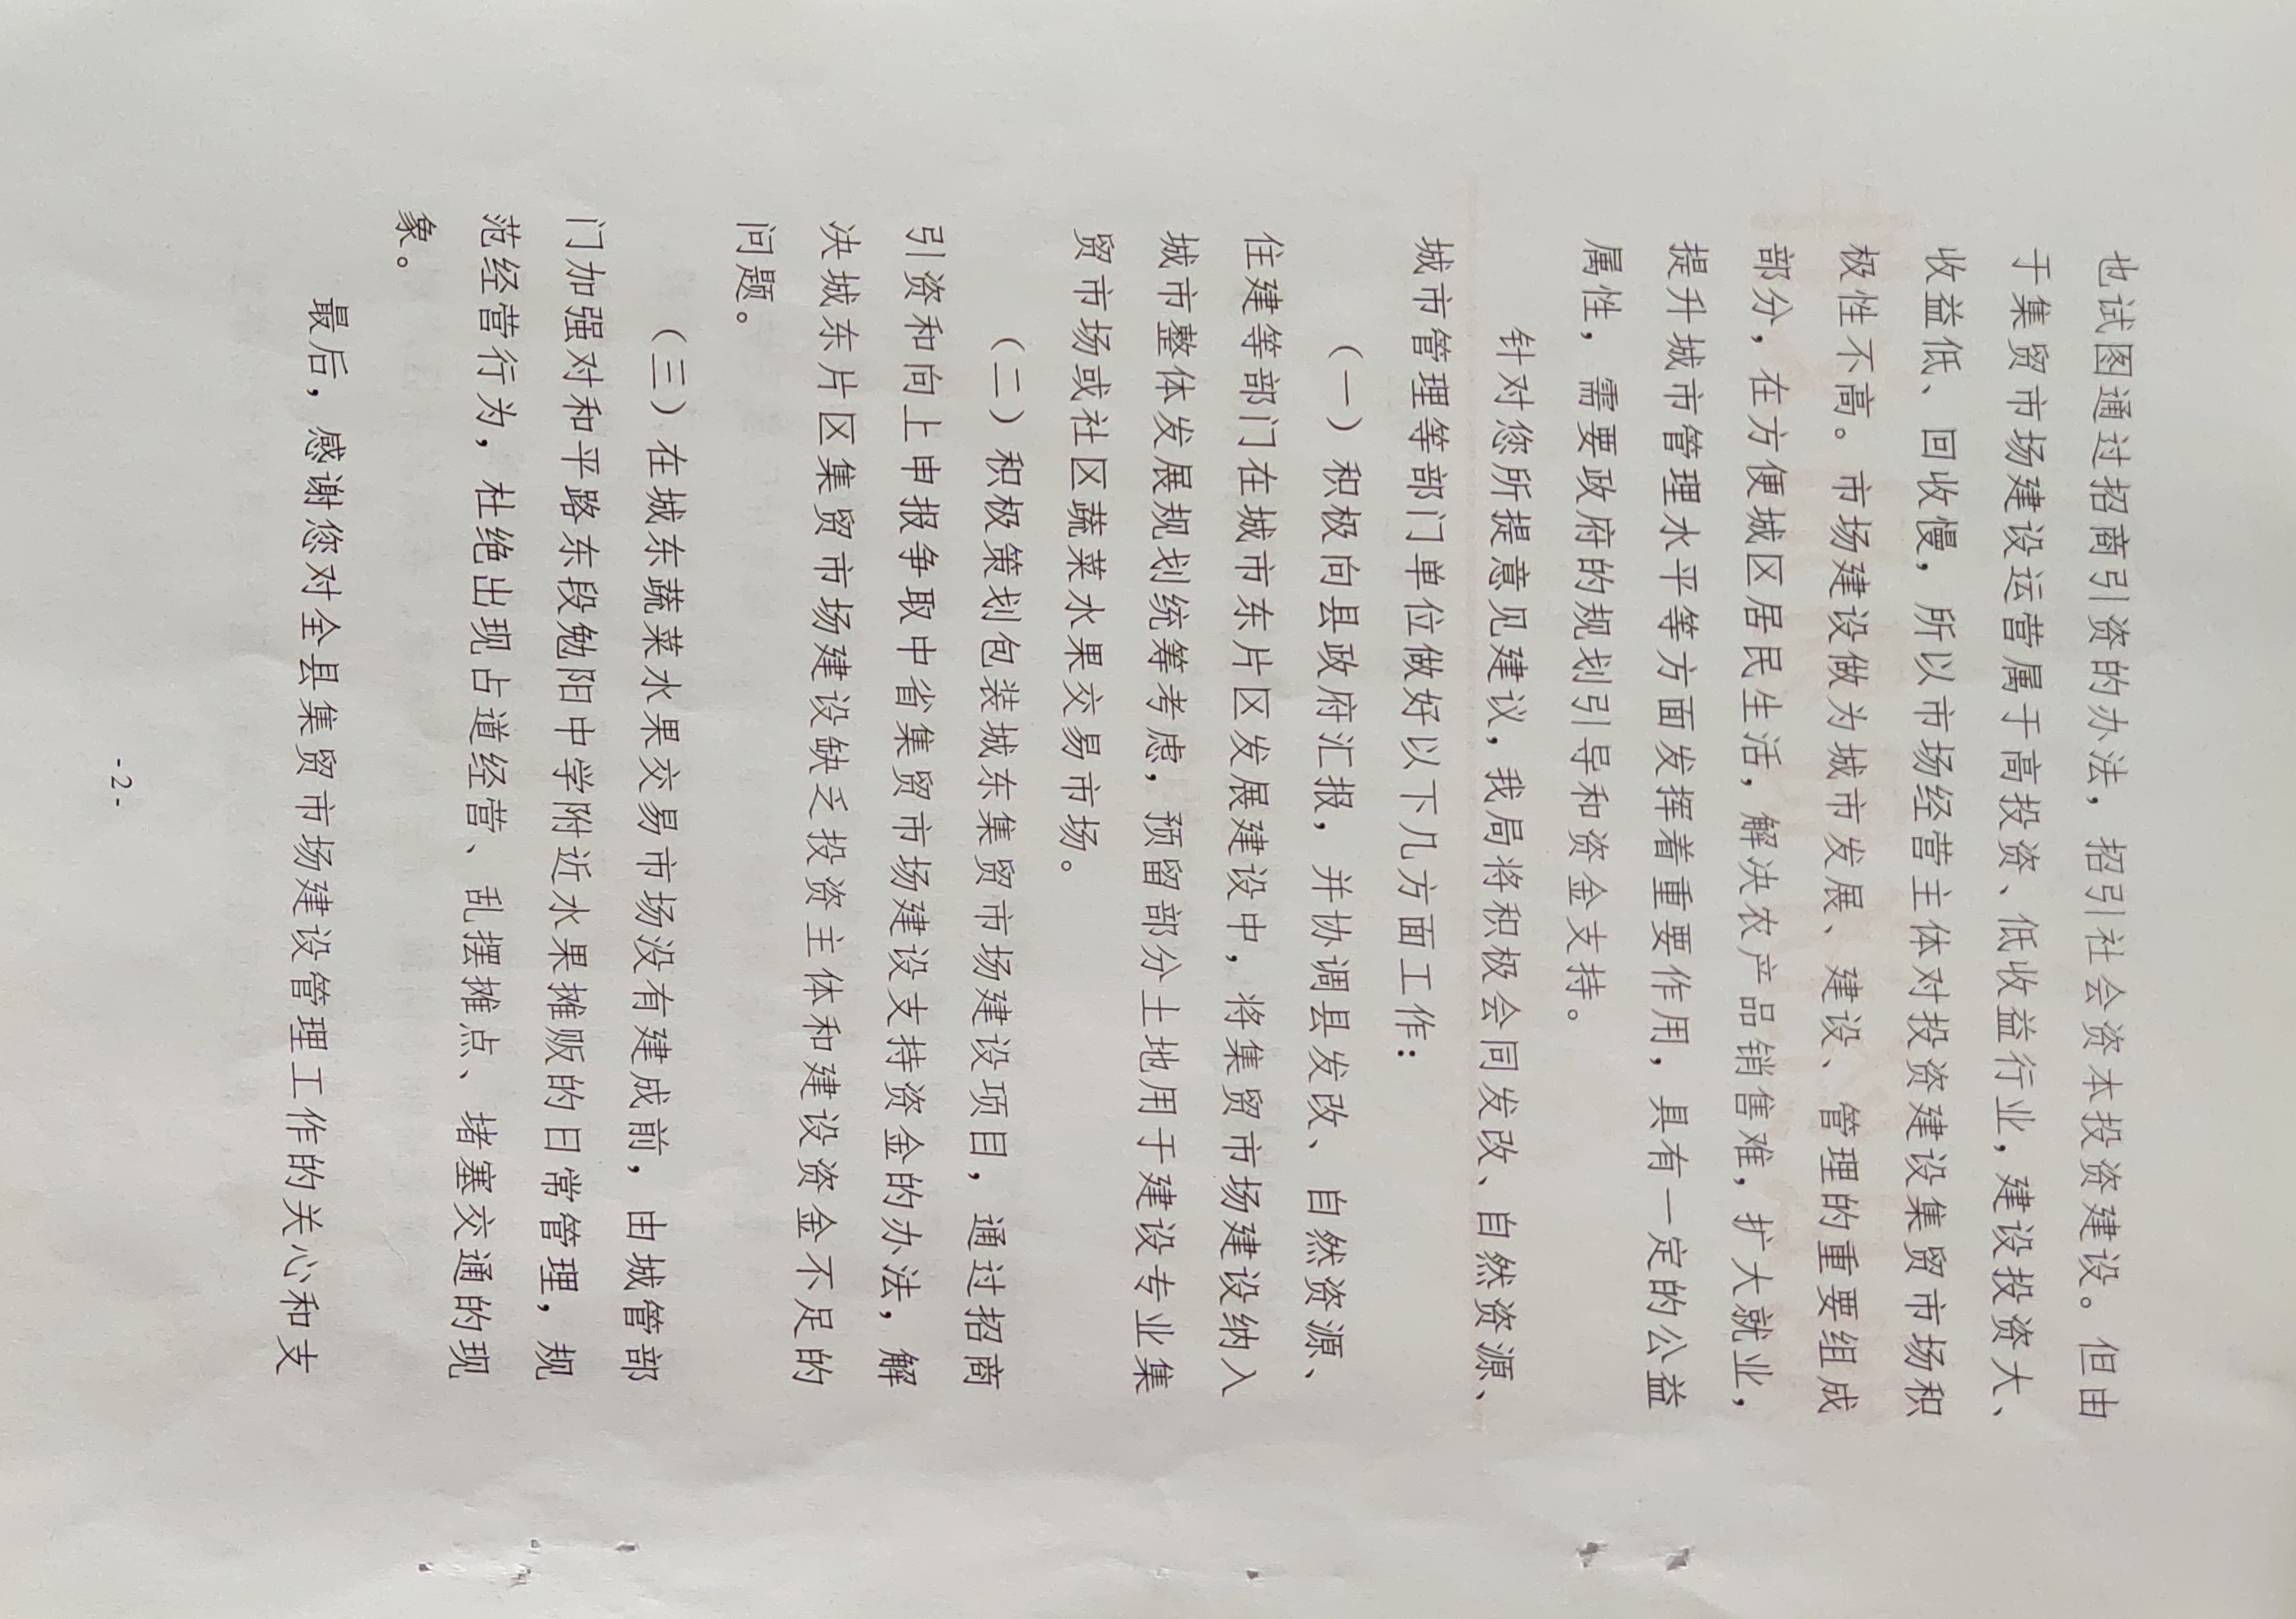 也试图通过招商引资的办法，招引社会资本投资建设。但由
于集贸市场建设运营属于高投资、低收益行业，建设投资大、
收益低、回收慢，所以市场经营主体对投资建设集贸市场积
极性不高。市场建设做为城市发展、建设、管理的重要组成
部分，在方便城区居民生活，解决农产品销售难，扩大就业，
提升城市管理水平等方面发挥着重要作用，具有一定的公益
属性，需要政府的规划引导和资金支持。
针对您所提意见建议，我局将积极会同发改、自然资源、
城市管理等部门单位做好以下几方面工作：
（一）积极向县政府汇报，并协调县发改、自然资源、
住建等部门在城市东片区发展建设中，将集贸市场建设纳入
城市整体发展规划统筹考虑，预留部分土地用于建设专业集
贸市场或社区蔬菜水果交易市场。
（二）积极策划包装城东集贸市场建设项目，通过招商
引资和向上申报争取中省集贸市场建设支持资金的办法，解
决城东片区集贸市场建设缺乏投资主体和建设资金不足的
问题。
（三）在城东蔬菜水果交易市场没有建成前，由城管部
门加强对和平路东段勉阳中学附近水果摊贩的日常管理，规
范经营行为，杜绝出现占道经营、乱摆摊点、堵塞交通的现
象。
最后，感谢您对全县集贸市场建设管理工作的关心和支
-2-